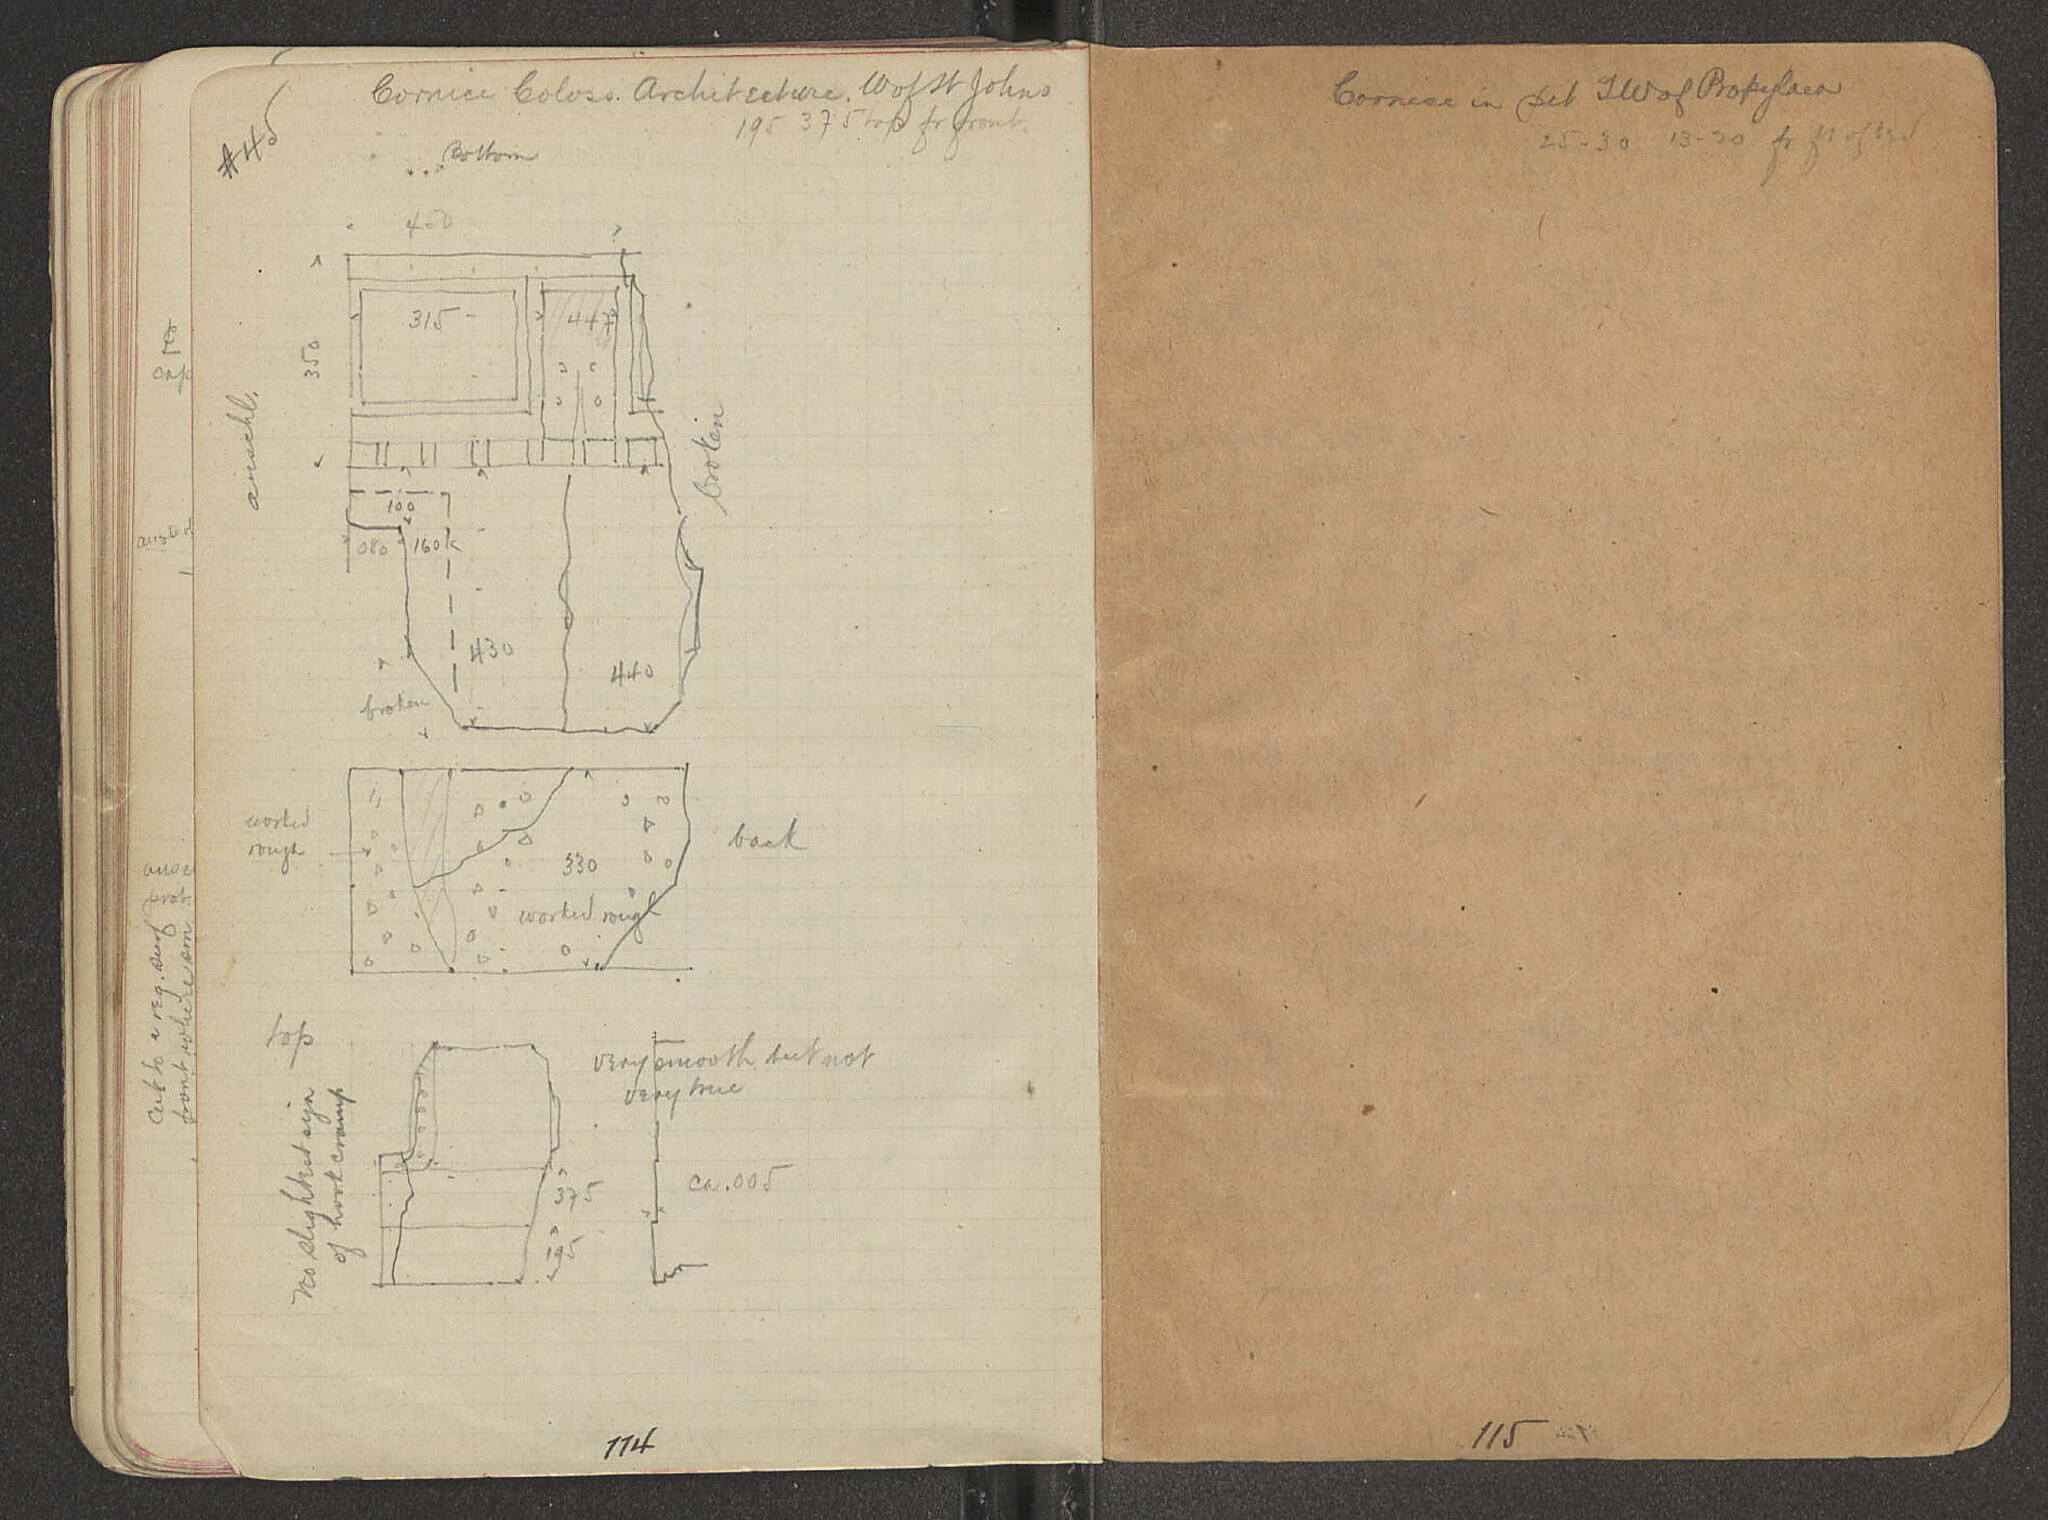 #45
Cornice Coloss. Architecture. W of St Johns
195 375 top fr front.
Bottom
450
315
447
350
anschl.
broken
100
080
160
430
440
broken
worked
rough
330
worked rough
back
top
very smooth but not
very true
No slightest sign
of hook cramp
375
195
ca .005
114
cap
prob.
cut to a reg. surf
front where
Cornice in pit SW of Propylaea
25-30 13-20 fr
115